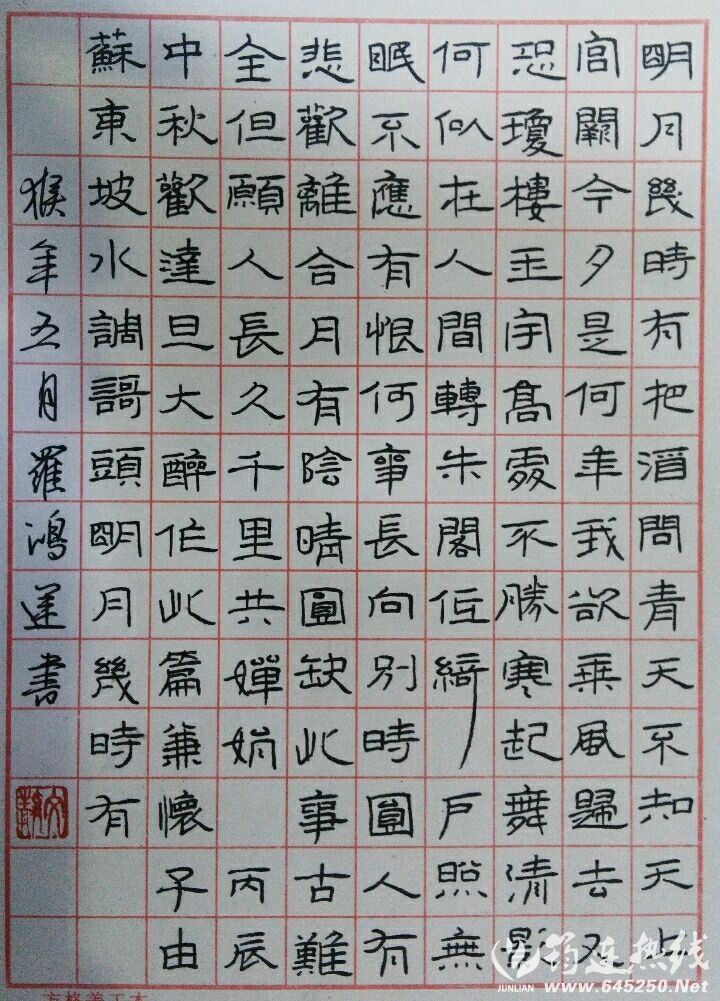 明月幾時有把酒問青天不知天上
宫闕今夕是何年我欲乘風歸去又
恐瓊樓玉宇高處不勝寒起舞清影
何似在人間轉朱閣低綺戶照無
眠不應有恨何事長向別時圓人有
悲歡離合月有陰晴圓缺此事古難
全但願人長久千里共嬋娟 丙辰
中秋歡達旦大醉作此篇兼懷子由
蘇東坡水調謌頭明月幾時有
猴年五月羅鴻運書
筠连热线
JUNLIAN www.645250.Net